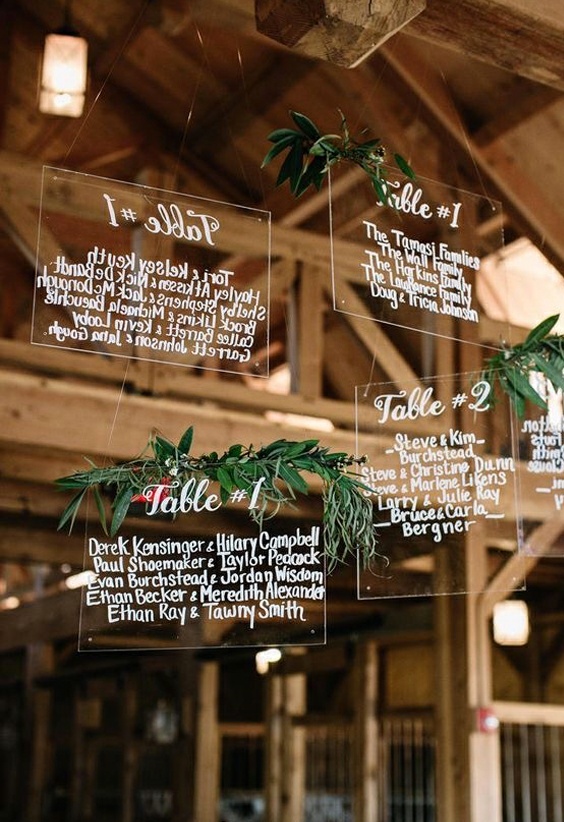 Table #1
Tori & Kelsey Keuth
Hayley Atkisson & Nick DeBandt
Shelby Stephens & Jack McDonough
Brock Likins & Michaela Baeuchle
Callee Barrett & Kevin Looby
Garrett Johnson & Jana Gough
Table #1
The Tamasi Families
The Wall Family
The Harkins Family
The Lawrance Family
Doug & Tricia Johnson
Table #2
-Steve & Kim-
Burchstead
Steve & Christine Dunn
Steve & Marlene Likens
Larry & Julie Ray
-Bruce & Carla-
Bergner
Table #1
Derek Kensinger & Hilary Campbell
Paul Shoemaker & Taylor Peacock
Evan Burchstead & Jordan Wisdom
Ethan Becker & Meredith Alexander
Ethan Ray & Tawny Smith